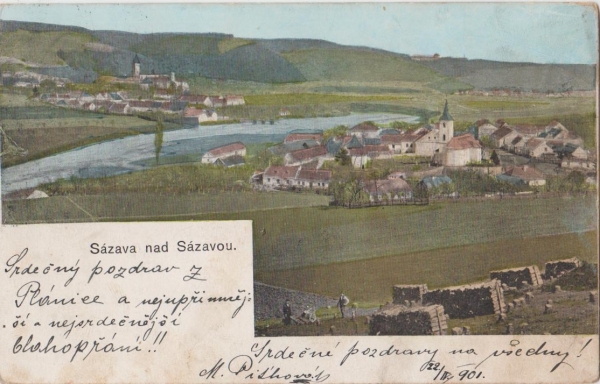 Sázava nad Sázavou.
Srdečný pozdrav z
Plánice a nejupřímněj-
ší a nejsrdečnější
blahopřání!!
Srdečné pozdravy na všechny!
M. 22/IV. 901.